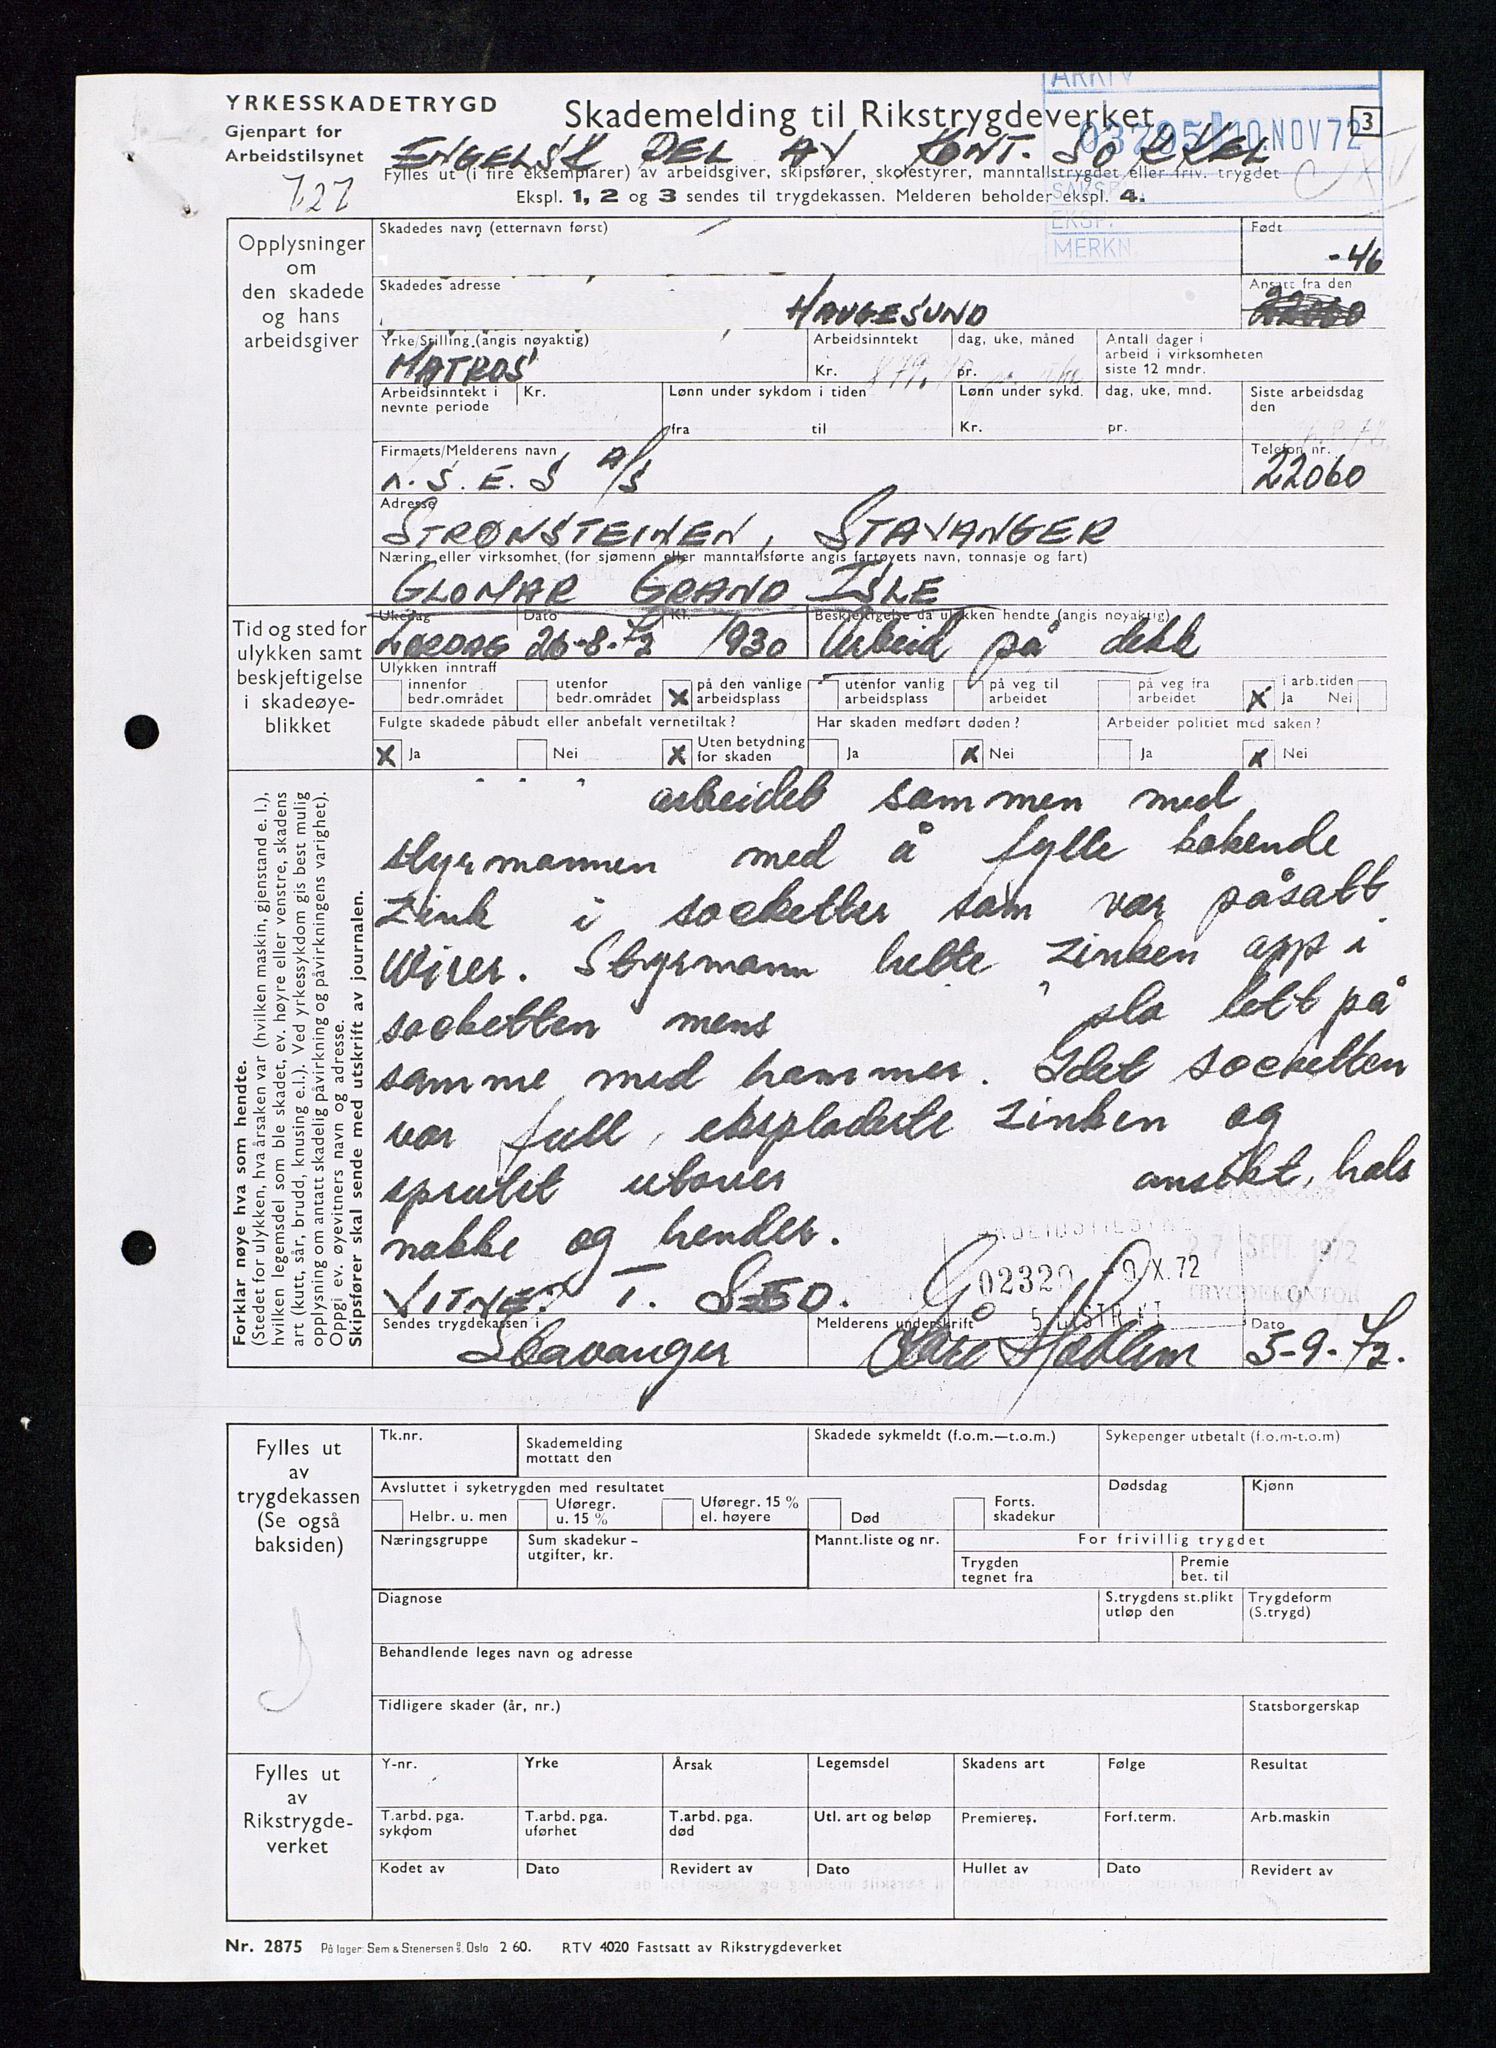 YRKESSKADETRYGD
Gjenpart for
Arbeidstilsynet
727
Skademelding til Rikstrygdeverket
ARKIV
10 NOV 72
3
SAKSB.
EKSP.
MERKN.
ENGELSK DEL AV KONT. SOKKEL
Fylles ut (i fire eksemplarer) av arbeidsgiver, skipsfører, skolestyrer, manntallstrygdet eller friv. trygdet
Ekspl. 1, 2 og 3 sendes til trygdekassen. Melderen beholder ekspl. 4.
Opplysninger
om
den skadede
og hans
arbeidsgiver
Skadedes navn (etternavn først)
Født
-46
Skadedes adresse
HAUGESUND
Ansatt fra den
Yrke/Stilling (angis nøyaktig)
MATROS
Arbeidsinntekt dag, uke, måned
Kr. pr. uke
Antall dager i
arbeid i virksomheten
siste 12 mndr.
Arbeidsinntekt i
nevnte periode
Kr.
Lønn under sykdom i tiden
fra til
Lønn under sykd. dag, uke, mnd.
Kr. pr.
Siste arbeidsdag
den
Firmaets/Melderens navn
N.S.E.S A/S
Telefon nr.
22060
Adresse
STRØNSTEINEN, STAVANGER
Næring eller virksomhet (for sjømenn eller manntallsførte angis fartøyets navn, tonnasje og fart)
GLOMAR GRAND ISLE
Tid og sted for
ulykken samt
beskjeftigelse
i skadeøye-
blikket
Ukedag Dato Kl. Beskjeftigelse da ulykken hendte (angis nøyaktig)
LØRDAG 26-8-72 1930 Arbeid på dekk
Ulykken inntraff
innenfor
bedr.området
utenfor
bedr.området
X på den vanlige
arbeidsplass
utenfor vanlig
arbeidsplass
på veg til
arbeidet
på veg fra
arbeidet
X i arb.tiden
Ja Nei
Fulgte skadede påbudt eller anbefalt vernetiltak?
X Ja Nei X Uten betydning
for skaden
Har skaden medført døden?
Ja X Nei
Arbeider politiet med saken?
Ja X Nei
Forklar nøye hva som hendte.
(Stedet for ulykken, hva årsaken var (hvilken maskin, gjenstand e. l.),
hvilken legemsdel som ble skadet, ev. høyre eller venstre, skadens
art (kutt, sår, brudd, knusing e.l.). Ved yrkessykdom gis best mulig
opplysning om antatt skadelig påvirkning og påvirkningens varighet).
Oppgi ev. øyevitners navn og adresse.
Skipsfører skal sende med utskrift av journalen.
arbeidet sammen med
styrmannen med å fylle kokende
zink i socketter som var påsatt
Wirer. Styrmann helte zinken opp i
socketten mens slo lett på
samme med hammer. Idet socketten
var full, eksploderte zinken og
sprutet utover ansikt, hals
nakke og hender.
ARBEIDSTILSYNET
02320 - 9/X.72
5. DISTRIKT
27 SEPT. 1972
TRYGDEKONTOR
Sendes trygdekassen i
Stavanger
Melderens underskrift
Dato
5-9-72.
Fylles ut
av
trygdekassen
(Se også
baksiden)
Tk.nr.
Skademelding
mottatt den
Skadede sykmeldt (f.o.m.—t.o.m.)
Sykepenger utbetalt (f.o.m-t.o.m)
Avsluttet i syketrygden med resultatet
Helbr. u. men
Uføregr.
u. 15 %
Uføregr. 15 %
el. høyere
Død
Forts.
skadekur
Dødsdag
Kjønn
Næringsgruppe
Sum skadekur-
utgifter, kr.
Mannt.liste og nr.
For frivillig trygdet
Trygden
tegnet fra
Premie
bet. til
Diagnose
S.trygdens st.plikt
utløp den
Trygdeform
(S.trygd)
Behandlende leges navn og adresse
Tidligere skader (år, nr.)
Statsborgerskap
Fylles ut
av
Rikstrygde-
verket
Y-nr. Yrke Årsak Legemsdel Skadens art Følge Resultat
T.arbd. pga.
sykdom
T.arbd. pga.
uførhet
T.arbd. pga.
død
Utl. art og beløp
Premieres.
Forf.term.
Arb.maskin
Kodet av Dato Revidert av Dato Hullet av Dato Revidert av
Nr. 2875 På lager: Sem & Stenersen A/S. Oslo 2 60. RTV 4020 Fastsatt av Rikstrygdeverket